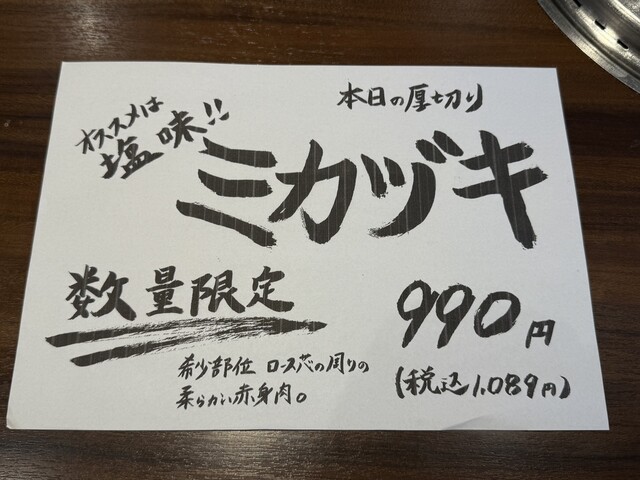 本日の厚切り
オススメは
塩味!!
ミカヅキ
数量限定
990円
(税込1,089円)
希少部位 ロース芯の周りの
柔らかい赤身肉。